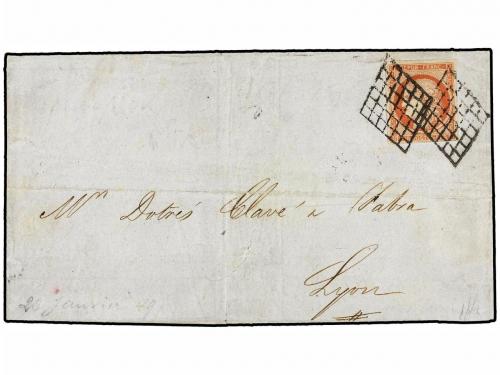 REPUB. FRANC.
Mrs Dotrés Clavé a Fabra
Lyon
26 janvier 49